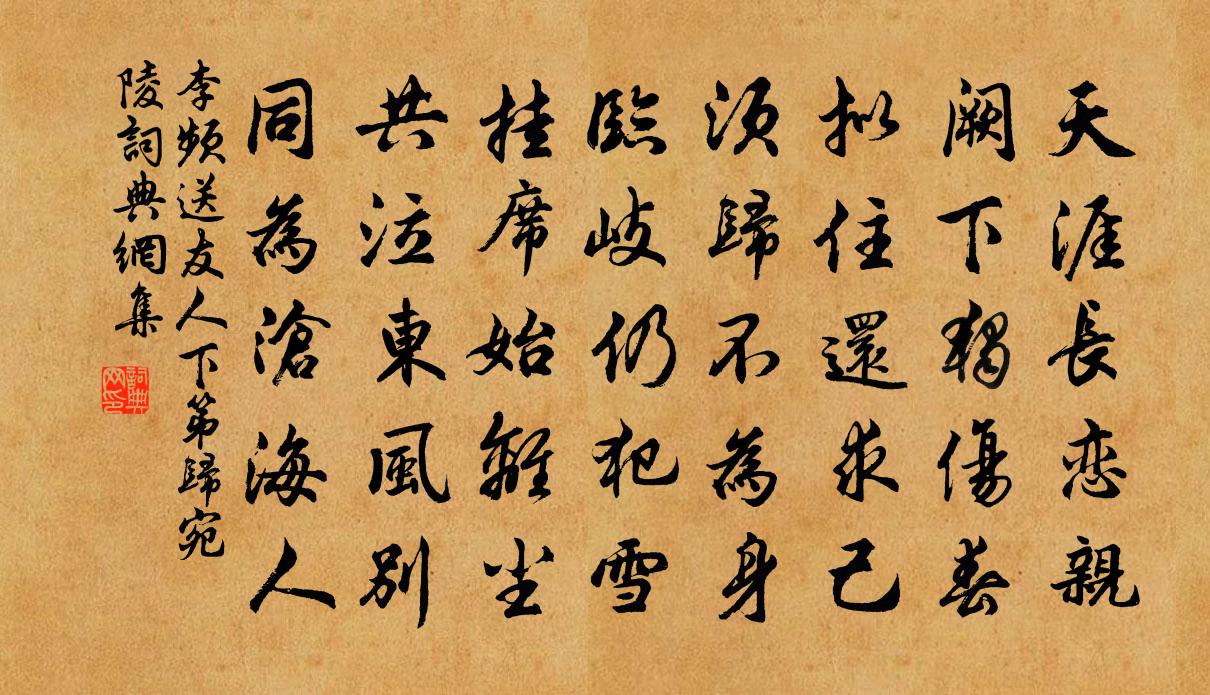 天涯長恋親
闕下獨傷春
拟住還求己
須歸不為身
臨岐仍犯雪
挂席始離尘
共泣東風別
同為滄海人
李頻送友人下第歸宛
陵詞典網集
詞典
网印